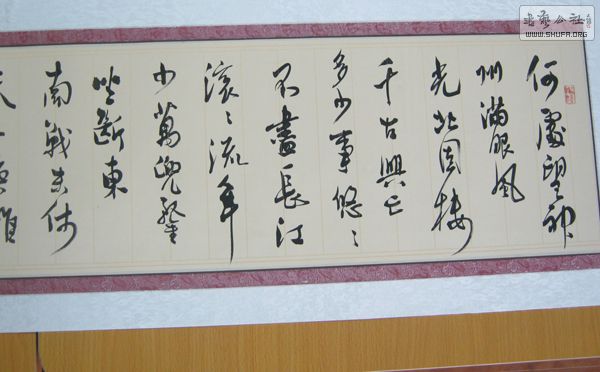 何處望神
州滿眼風
光北固樓
千古興亡
多少事悠〻
不盡長江
滾〻流年
少萬兜鍪
坐斷東
南戰未休
WWW.SHUFA.ORG